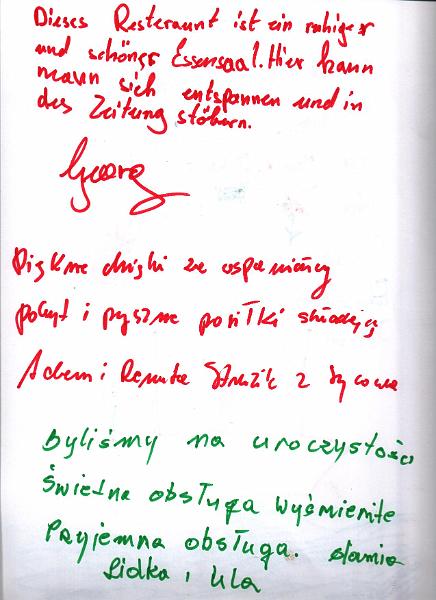 Dieses Resteraunt ist ein ruhiger
und schöner Essensaal. Hier kann
mann sich entspannen und in
des Zeitung stöbern.
Georg
Piękne dzięki za wspaniały
pobyt i pyszne posiłki składają
Adam i Renata z Sycowa
Byliśmy na uroczystości
Świetna obsługa wyśmienite
Przyjemna obsługa.
Lidka i Ula